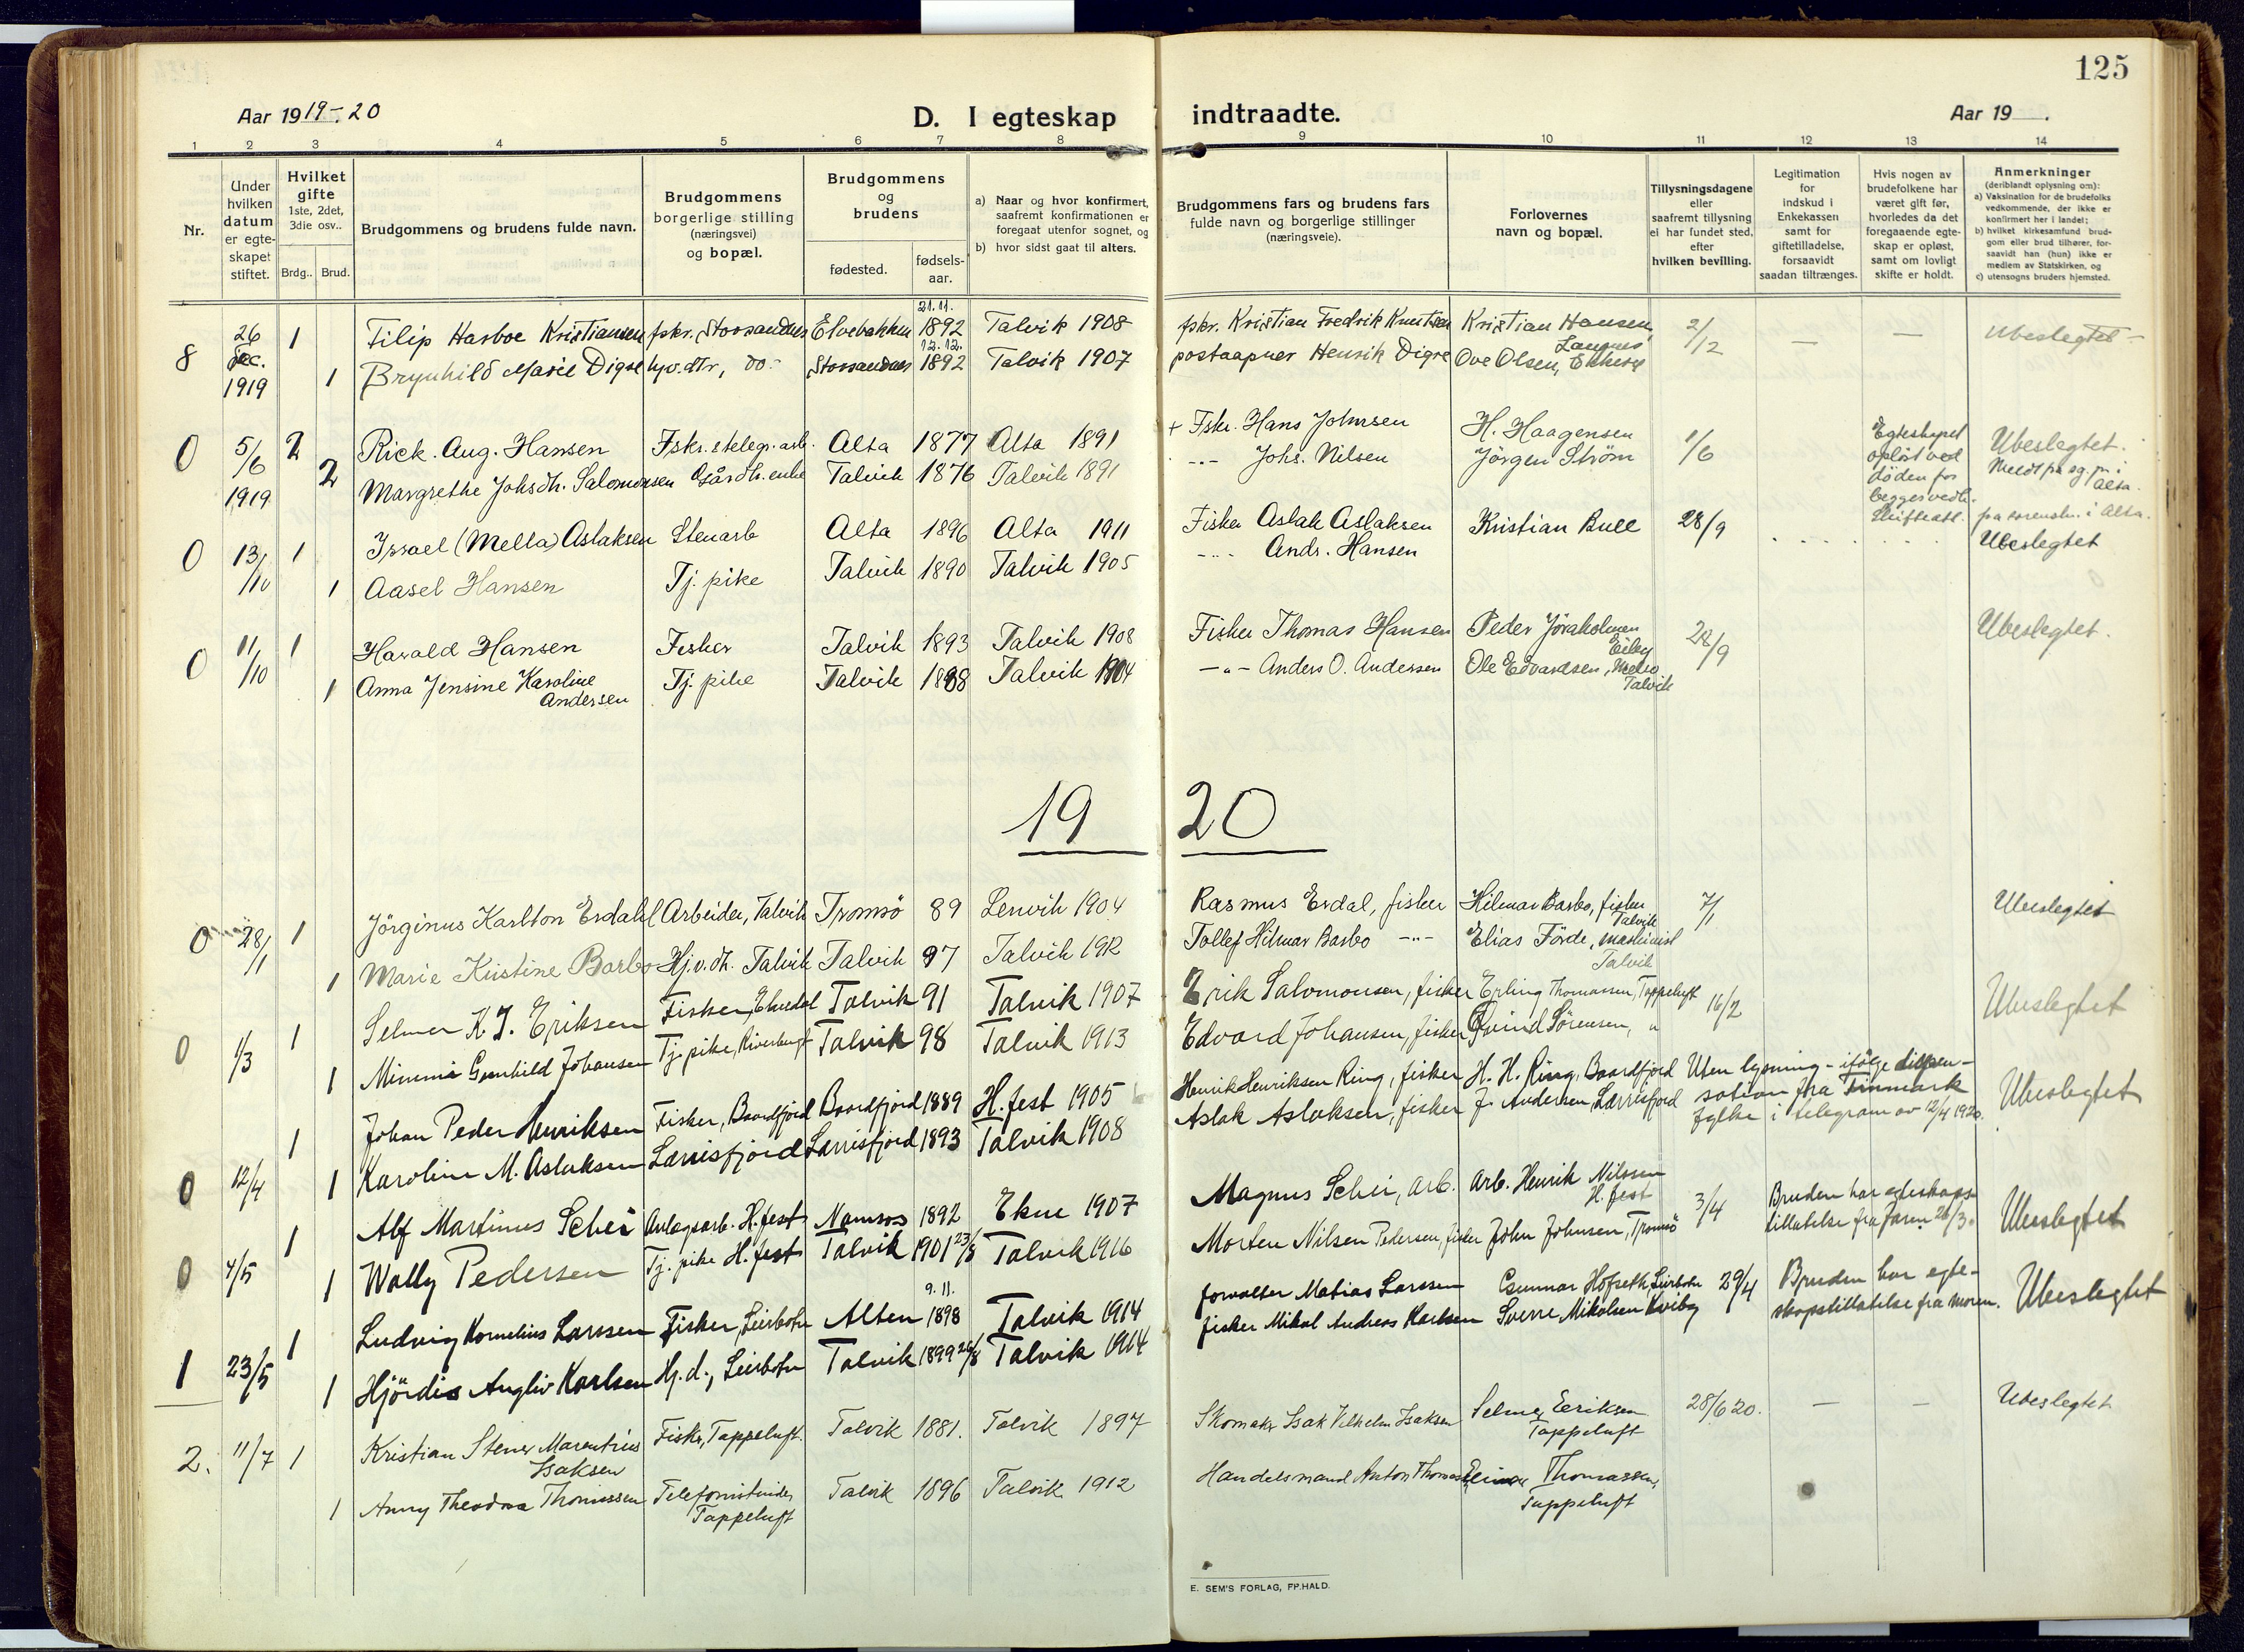 125
Aar 1919-20
D. I egteskap indtraadte.
Aar 19 .
1 2 3 4 5 6 7 8 9 10 11 12 13 14
Nr.
Under hvilken datum er egte-skapet stiftet.
Hvilket gifte 1ste, 2det, 3die osv..
Brdg.. Brud.
Brudgommens og brudens fulde navn.
Brudgommens borgerlige stilling (næringsvei) og bopæl.
Brudgommens og brudens
fødested. fødsels-aar.
a) Naar og hvor konfirmert, saafremt konfirmationen er foregaat utenfor sognet, og
b) hvor sidst gaat til alters.
Brudgommens fars og brudens fars fulde navn og borgerlige stillinger (næringsveie).
Forlovernes navn og bopæl.
Tillysningsdagene eller saafremt tillysning ei har fundet sted, efter hvilken bevilling.
Legitimation for indskud i Enkekassen samt for giftetilladelse, forsaavidt saadan tiltrænges.
Hvis nogen av brudefolkene har været gift før, hvorledes da det foregaaende egte-skap er opløst, samt om lovligt skifte er holdt.
Anmerkninger (deriblandt oplysning om):
a) Vaksination for de brudefolks vedkommende, der ikke er konfirmert her i landet;
b) hvilket kirkesamfund brud-gom eller brud tilhører, for-saavidt han (hun) ikke er medlem av Statskirken, og
c) utensogns bruders hjemsted.
8 26 dec. 1919 1 Filip Harboe Kristiansen fskr. Storsandnes Elvebakken 21.11. 1892 Talvik 1908 fskr. Kristian Fredrik Knutsen Kristian Hansen, Langnes 2/12 — — Ubeslegtet —
1 Brynhild Marie Digre hv.dtr, do- Storsandnes 12.12. 1892 Talvik 1907 postaapner Henrik Digre Ove Olsen,
0 5/6 1919 2 Rick. Aug. Hansen Fskr. & telegr. arb. Alta 1877 Alta 1891 + Fskr. Hans Johnsen H. Haagensen 1/6 Egteskapet opløst ved døden for begges vedk. Ubeslegtet.
2 Margrethe Johsdh. Salomonsen Gårdb. enke Talvik 1876 Talvik 1891 -"- Johs. Nilsen Jörgen Ström
0 13/10 1 Israel (Mella) Aslaksen Stenarb Alta 1896 Alta 1911 Fisker Aslak Aslaksen Kristian Bull 28/9 Ubeslegtet
1 Aasel Hansen Tj. pike Talvik 1890 Talvik 1905 -"- Andr. Hansen
0 11/10 1 Harald Hansen Fisker Talvik 1893 Talvik 1908 Fisker Thomas Hansen Peder Jöraholmen Eiby 28/9 Ubeslegtet.
1 Anna Jensine Karoline Andersen Tj. pike Talvik 1888 Talvik 1904 -"- Anders O. Andersen Ole Edvardsen, Melsvik Talvik
19 20
0 28/1 1 Jörginus Karlton Erdahl Arbeider, Talvik Tromsö 89 Lenvik 1904 Rasmus Erdal, fisker Hilmar Barbo, fisker Talvik 7/1 Ubeslegtet
1 Marie Kristine Barbo Hj.v.dt. Talvik Talvik 97 Talvik 1912 Tollef Hilmar Barbo -"- Elias Förde, maskinist Talvik
0 1/3 1 Selmer K. J. Eriksen Fisker, Talvik 91 Talvik 1907 Erik Salomonsen, fisker Erling Thomassen, Tappeluft 16/2 Ubeslegtet
1 Mimmi Gunhild Johansen Tj. pike, Talvik 98 Talvik 1913 Edvard Johansen, fisker Øvind Sörensen, "
0 12/4 1 Johan Peder Henriksen Fisker, Baardfjord Baardfjord 1889 H.fest 1905 Henrik Henriksen Ring, fisker H. H. Ring, Baardfjord Uten lysning - ifölge dispen-sation fra Finmark fylke i telegram av 12/4 1920. Ubeslegtet
1 Karoline M. Aslaksen Lærrisfjord Lærrisfjord 1893 Talvik 1908 Aslak Aslaksen, fisker J. Andersen, Lærrisfjord
0 4/5 1 Alf Martinus Schei Anlægsarb. H.fest Namsos 1892 Ekne 1907 Magnus Schei, arb. Arb. Henrik Nilssen H. fest 3/4 Bruden har egteskaps-tillatelse fra faren 26/3. Ubeslegtet
1 Wally Pedersen Tj. pike H.fest Talvik 1901 23/8 Talvik 1916 Morten Nilsen Pedersen, fisker John Johnsen, Tromsö
1 23/5 1 Ludvig Kornelius Larssen Fisker, Leirbotn Alten 9.11. 1898 Talvik 1914 forvalter Matias Larssen Gunnar Hofseth, Leirbotn 29/4 Bruden har egte-skapstillatelse fra moren. Ubeslegtet
1 Hjördis Angliv Karlsen Hj.d., Leirbotn Talvik 1899 26/8 Talvik 1914 fisker Mikal Andreas Karlsen Sverre Mikalsen Kviby
2. 11/7 1 Kristian Stener Marentius Isaksen Fisker, Tappeluft. Talvik 1881. Talvik 1897 Skomaker Isak Vilhelm Isaksen Selmer Eeriksen Tappeluft 28/6 20. — — Ubeslegtet
1 Anny Theodora Thomassen Telefonistinde, Tappeluft Talvik 1896 Talvik 1912 Handelsmand Anton Thomassen Thomassen, Tappeluft
E. SEM'S FORLAG, FR.HALD.